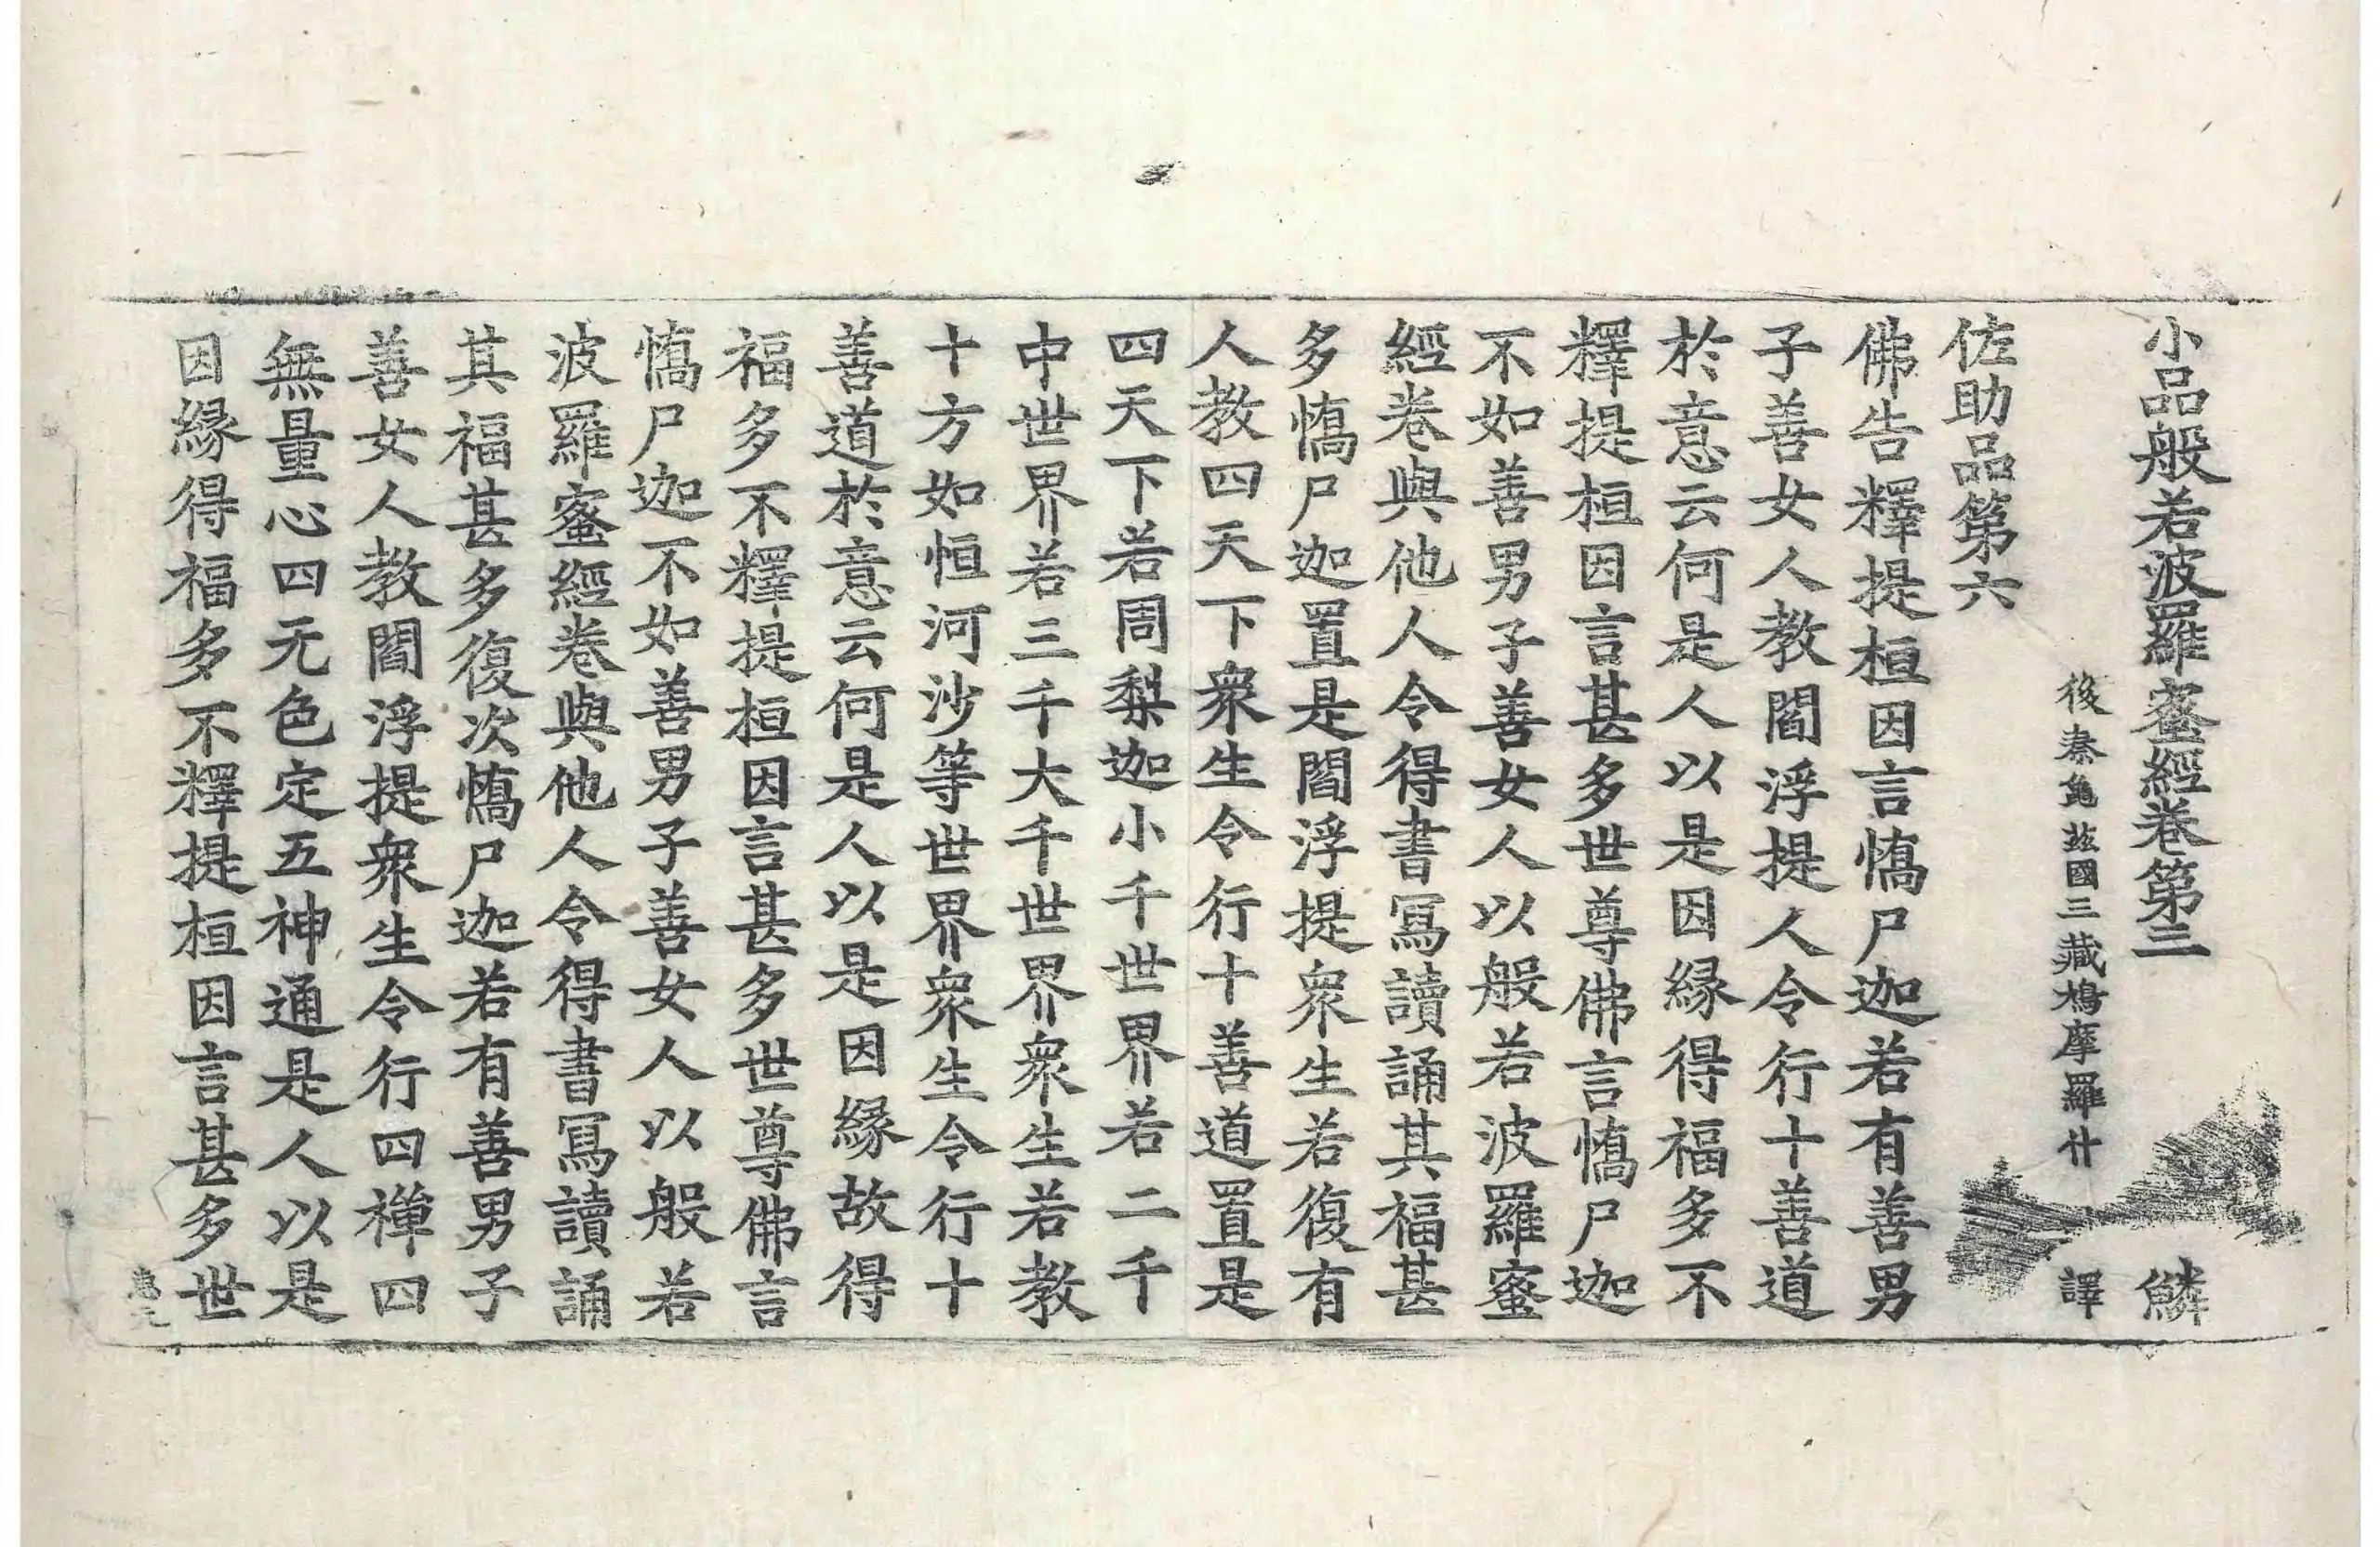 小品般若波羅蜜經卷第三　鱗
後秦龜茲國三藏鳩摩羅什　譯
佐助品第六
佛告釋提桓因言憍尸迦若有善男
子善女人教閻浮提人令行十善道
於意云何是人以是因緣得福多不
釋提桓因言甚多世尊佛言憍尸迦
不如善男子善女人以般若波羅蜜
經卷與他人令得書寫讀誦其福甚
多憍尸迦置是閻浮提衆生若復有
人教四天下衆生令行十善道置是
四天下若周梨迦小千世界若二千
中世界若三千大千世界衆生若教
十方如恒河沙等世界衆生令行十
善道於意云何是人以是因緣故得
福多不釋提桓因言甚多世尊佛言
憍尸迦不如善男子善女人以般若
波羅蜜經卷與他人令得書寫讀誦
其福甚多復次憍尸迦若有善男子
善女人教閻浮提衆生令行四禪四
無量心四无色定五神通是人以是
因緣得福多不釋提桓因言甚多世